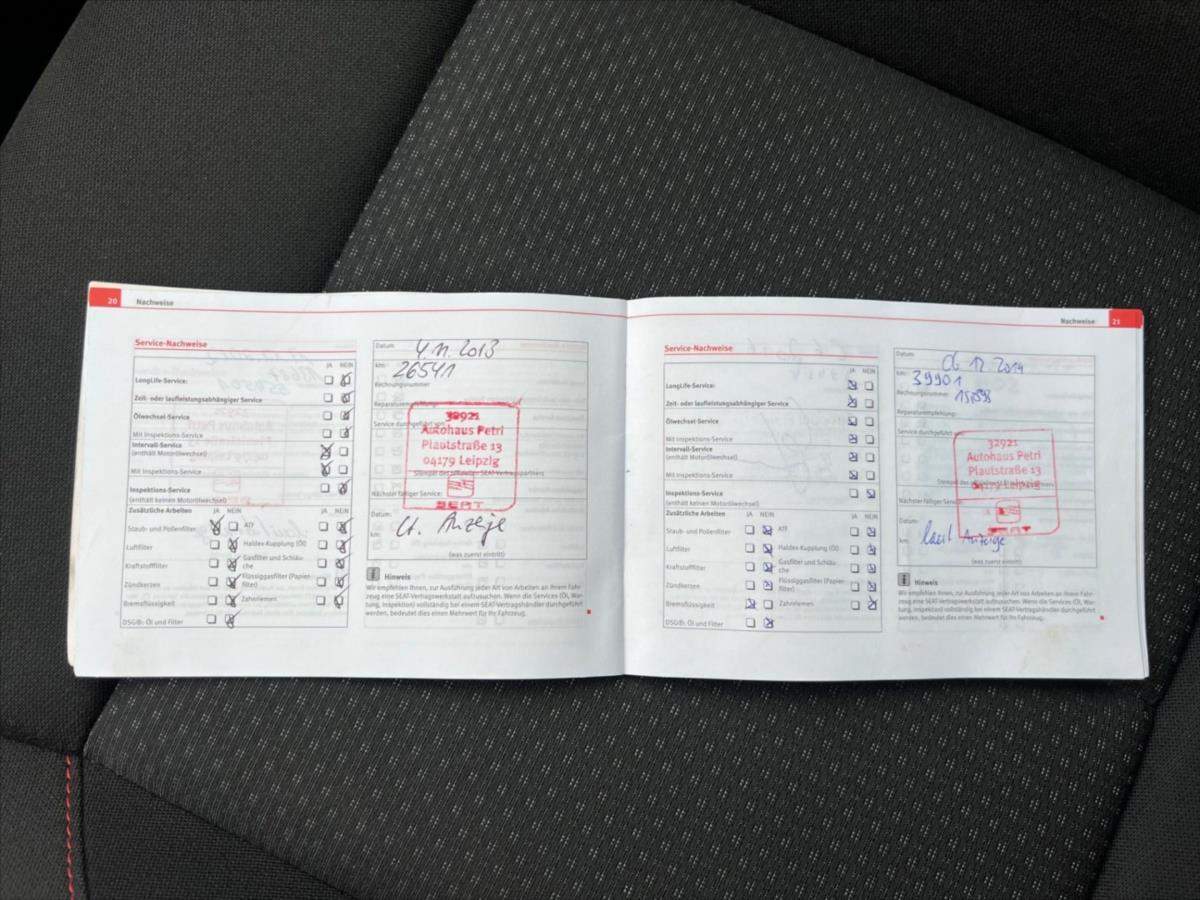 20 Nachweise
Service-Nachweise
JA NEIN
LongLife-Service:
Zeit- oder laufleistungsabhängiger Service
Ölwechsel-Service
Mit Inspektions-Service
Intervall-Service
(enthält Motorölwechsel)
Mit Inspektions-Service
Inspektions-Service
(enthält keinen Motorölwechsel)
Zusätzliche Arbeiten JA NEIN JA NEIN
Staub- und Pollenfilter ATF
Luftfilter Haldex-Kupplung (Öl)
Kraftstofffilter Gasfilter und Schläuche
Zündkerzen Flüssiggasfilter (Papierfilter)
Bremsflüssigkeit Zahnriemen
DSG/B: Öl und Filter
Datum: 4.11.2013
km: 26541
Rechnungsnummer:
Reparaturempfehlung:
Service durchgeführt von:
32921
Autohaus Petri
Plautstraße 13
04179 Leipzig
Stempel des SEAT-Vertragspartners
SEAT
Nächster fälliger Service:
Datum: lt. Anzeige
km:
(was zuerst eintritt)
Hinweis
Wir empfehlen Ihnen, zur Ausführung jeder Art von Arbeiten an Ihrem Fahr-
zeug eine SEAT-Vertragswerkstatt aufzusuchen. Wenn die Services (Öl, War-
tung, Inspektion) vollständig bei einem SEAT-Vertragshändler durchgeführt
werden, bedeutet dies einen Mehrwert für Ihr Fahrzeug.
Nachweise 21
Service-Nachweise
JA NEIN
LongLife-Service:
Zeit- oder laufleistungsabhängiger Service
Ölwechsel-Service
Mit Inspektions-Service
Intervall-Service
(enthält Motorölwechsel)
Mit Inspektions-Service
Inspektions-Service
(enthält keinen Motorölwechsel)
Zusätzliche Arbeiten JA NEIN JA NEIN
Staub- und Pollenfilter ATF
Luftfilter Haldex-Kupplung (Öl)
Kraftstofffilter Gasfilter und Schläuche
Zündkerzen Flüssiggasfilter (Papierfilter)
Bremsflüssigkeit Zahnriemen
DSG/B: Öl und Filter
Datum: 06 12 2014
km: 39901
Rechnungsnummer:
Reparaturempfehlung:
Service durchgeführt
32921
Autohaus Petri
Plautstraße 13
04179 Leipzig
SEAT
Nächster fälliger Service:
Datum:
km: laut Anzeige
(was zuerst eintritt)
Hinweis
Wir empfehlen Ihnen, zur Ausführung jeder Art von Arbeiten an Ihrem Fahr-
zeug eine SEAT-Vertragswerkstatt aufzusuchen. Wenn die Services (Öl, War-
tung, Inspektion) vollständig bei einem SEAT-Vertragshändler durchgeführt
werden, bedeutet dies einen Mehrwert für Ihr Fahrzeug.